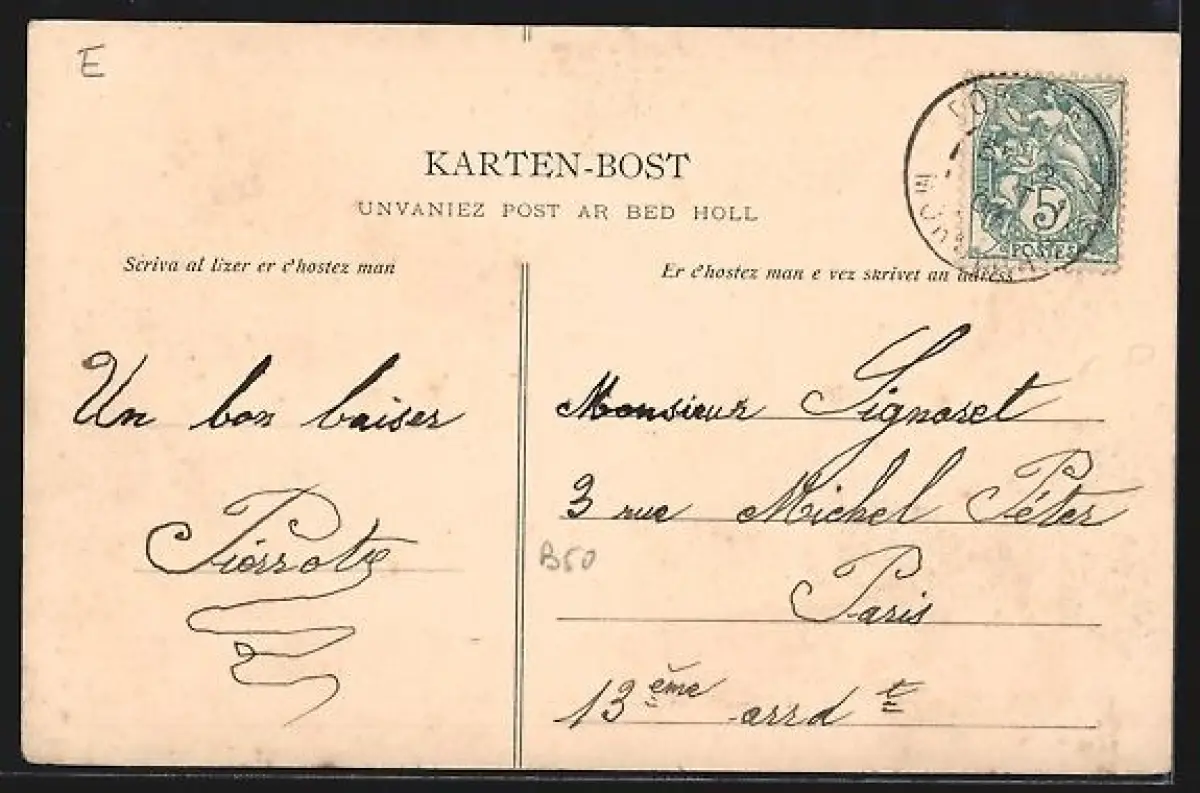 E
KARTEN-BOST
UNVANIEZ POST AR BED HOLL
Scriva al lizer er c'hostez man
Er c'hostez man e vez skrivet an adress
5
POSTES
Un bon baiser
Pierrot
Monsieur Signoret
3 rue Michel Péter
Paris
13ème arrdt
B50